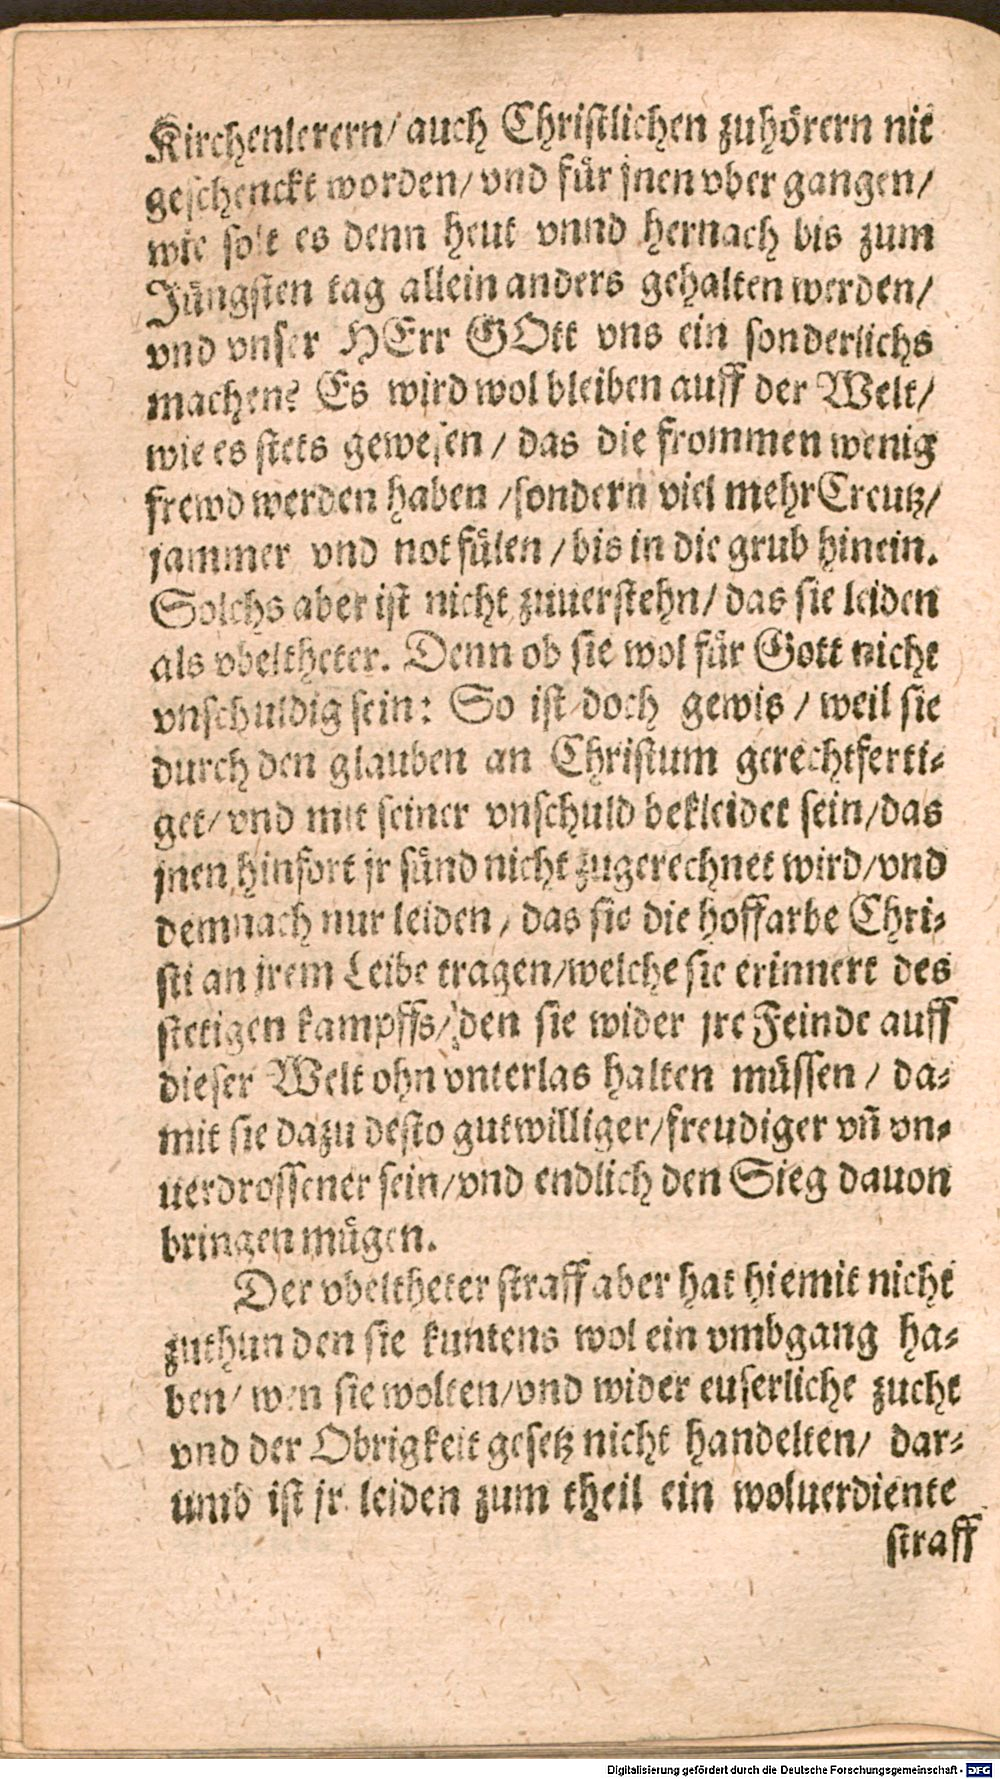 Kirchenlerern/ auch Christlichen zuhörern nit
geschenckt worden/ vnd für jnen vber gangen/
wie solt es denn heut vnnd hernach bis zum
Jüngsten tag allein anders gehalten werden/
vnd vnser HErr GOtt vns ein sonderlichs
machen? Es wird wol bleiben auff der Welt/
wie es stets gewesen / das die frommen wenig
frewd werden haben /sondern viel mehr Creutz/
jammer vnd not fülen / bis in die grub hinein.
Solchs aber ist nicht zuuerstehn/ das sie leiden
als vbeltheter. Denn ob sie wol für Gott nicht
vnschuldig sein: So ist doch gewis / weil sie
durch den glauben an Christum gerechtferti-
get/ vnd mit seiner vnschuld bekleidet sein/das
jnen hinfort jr sünd nicht zugerechnet wird/vnd
demnach nur leiden / das sie die hoffarbe Chri-
sti an jrem Leibe tragen/welche sie erinnert des
stetigen kampffs/ den sie wider jre Feinde auff
dieser Welt ohn vnterlas halten müssen / da-
mit sie dazu desto gutwilliger/freudiger vñ vn-
uerdrossener sein/vnd endlich den Sieg dauon
bringen mügen.
Der vbeltheter straff aber hat hiemit nicht
zuthun den sie kuntens wol ein vmbgang ha-
ben/ wen sie wolten/vnd wider euserliche zucht
vnd der Obrigkeit gesetz nicht handelten/ dar-
umb ist jr leiden zum theil ein woluerdiente
straff
Digitalisierung gefördert durch die Deutsche Forschungsgemeinschaft - DFG